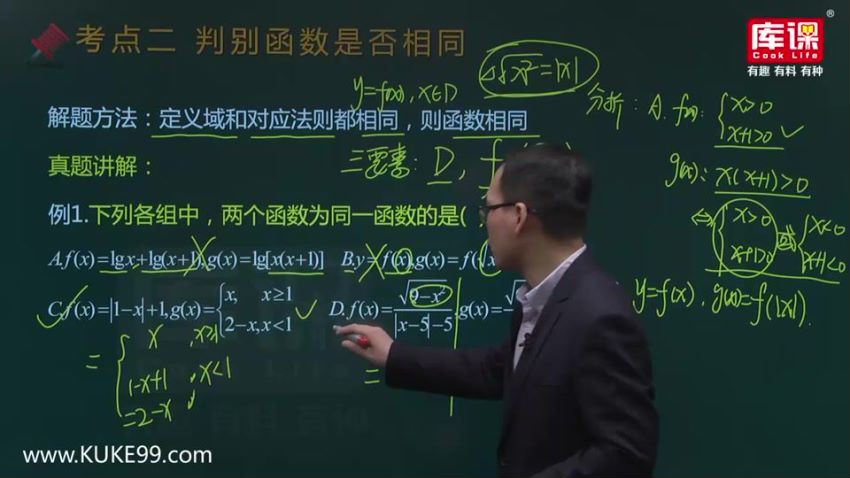 考点二 判别函数是否相同
库课®
Cook Life
有趣 有料 有种
y=f(x), x∈D
√x²=|x|
解题方法：定义域和对应法则都相同，则函数相同
三要素：D, f
真题讲解：
例1.下列各组中，两个函数为同一函数的是(
A.f(x)=lgx+lg(x+1),g(x)=lg[x(x+1)] B.y=f(x),g(x)=f(
C.f(x)=|1-x|+1,g(x)={x, x≥1
2-x,x<1
D.f(x)=√9-x²/|x-5|-5,g(x)=
={x, x≥1
1-x+1, x<1
=2-x
=
分析：A. f(x): {x>0
x+1>0 ✓
g(x): x(x+1)>0
⇔{x>0
x+1>0 或{x<0
x+1<0
y=f(x), g(x)=f(|x|)
www.KUKE99.com
有趣 有料 有种